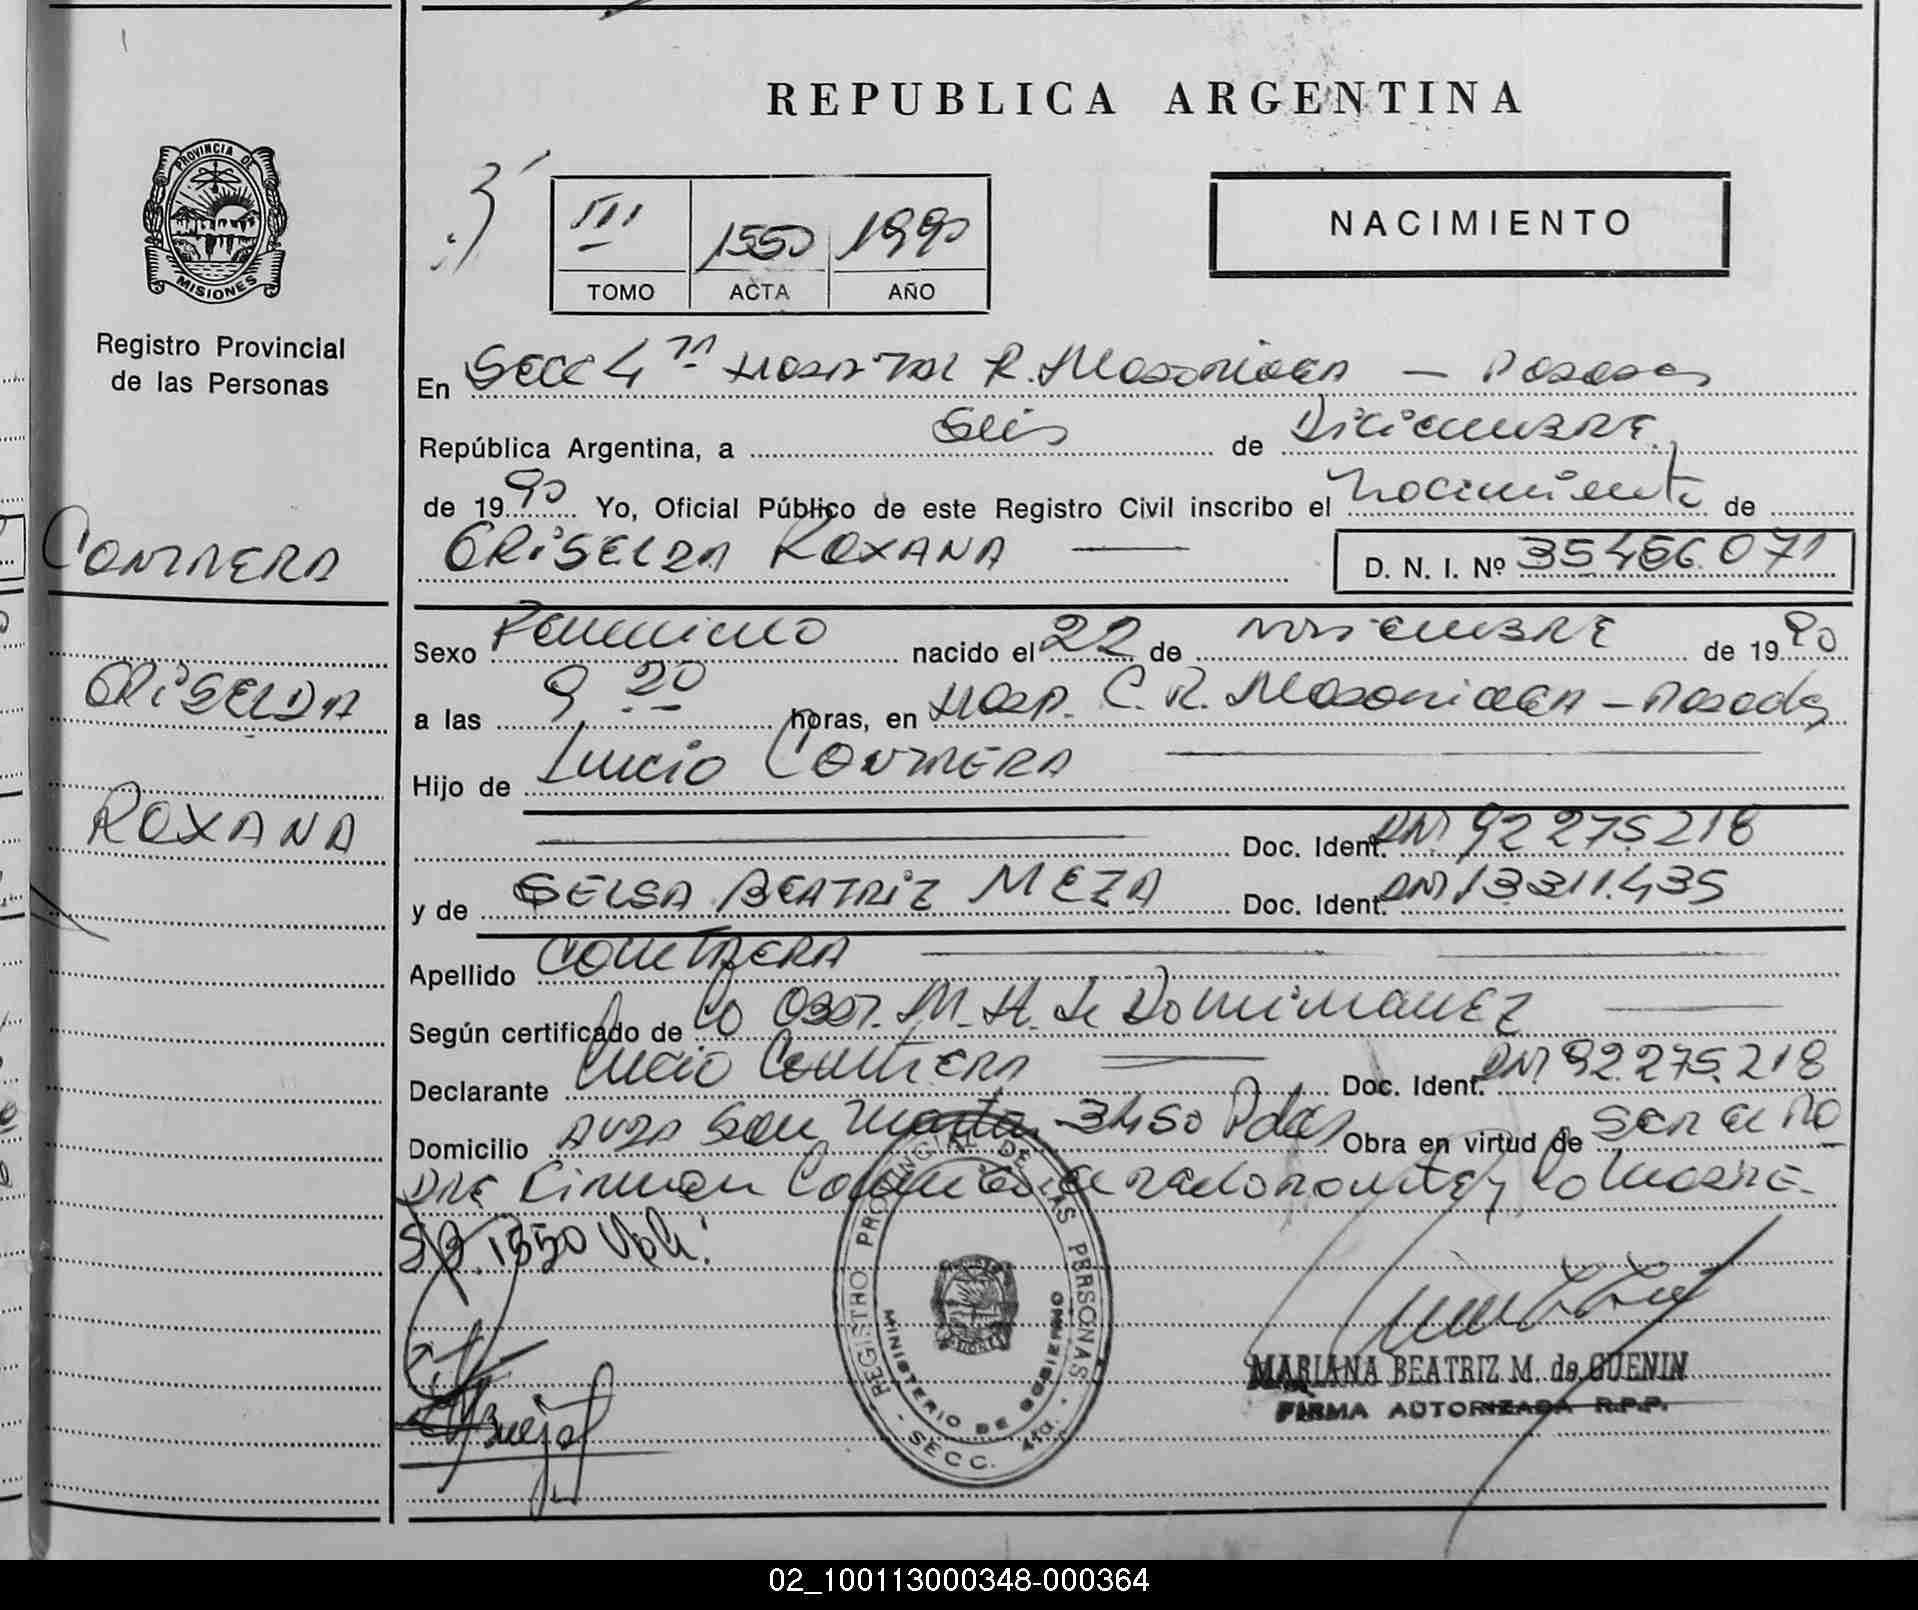 REPUBLICA ARGENTINA
PROVINCIA DE
MISIONES
Registro Provincial
de las Personas
III 1550 1990
TOMO ACTA AÑO
NACIMIENTO
En Secc 4ta Hospital R. Madariaga — Posadas
República Argentina, a Seis de Diciembre
de 1990 Yo, Oficial Público de este Registro Civil inscribo el nacimiento de
GRISELDA ROXANA — D. N. I. Nº 35456071
CONTRERA
GRISELDA
ROXANA
Sexo Femenino nacido el 22 de noviembre de 1990
a las 9 20 horas, en Hosp. C. R. Madariaga - Posadas
Hijo de Lucio CONTRERA
Doc. Ident. DNI 92 275.218
y de SELSA BEATRIZ MEZA Doc. Ident. DNI 13.311.435
Apellido CONTRERA
Según certificado de la Obst. M. H. de Dominguez
Declarante Lucio Contrera Doc. Ident. DNI 92.275.218
Domicilio Avda San Martin 3450 Pdas Obra en virtud de ser el pa
dre Firman el declarante y la madre.
1550 Vale:
REGISTRO PROVINCIAL DE LAS PERSONAS
MINISTERIO DE GOBIERNO
SECC. 4ta.
MARIANA BEATRIZ M. de GUENIN
FIRMA AUTORIZADA R.P.P.
02_100113000348-000364